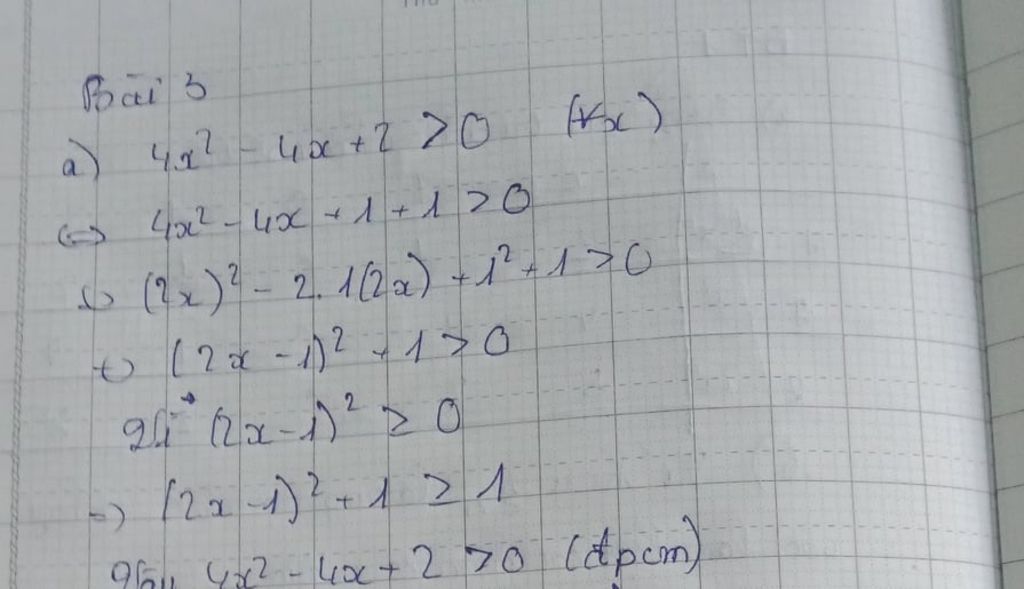 Bài 3
a) 4x² - 4x + 2 > 0 (∀x)
⇔ 4x² - 4x + 1 + 1 > 0
⇔ (2x)² - 2. 1(2x) + 1² + 1 > 0
⇔ (2x - 1)² + 1 > 0
(2x - 1)² ≥ 0
=> (2x - 1)² + 1 ≥ 1
4x² - 4x + 2 > 0 (đpcm)